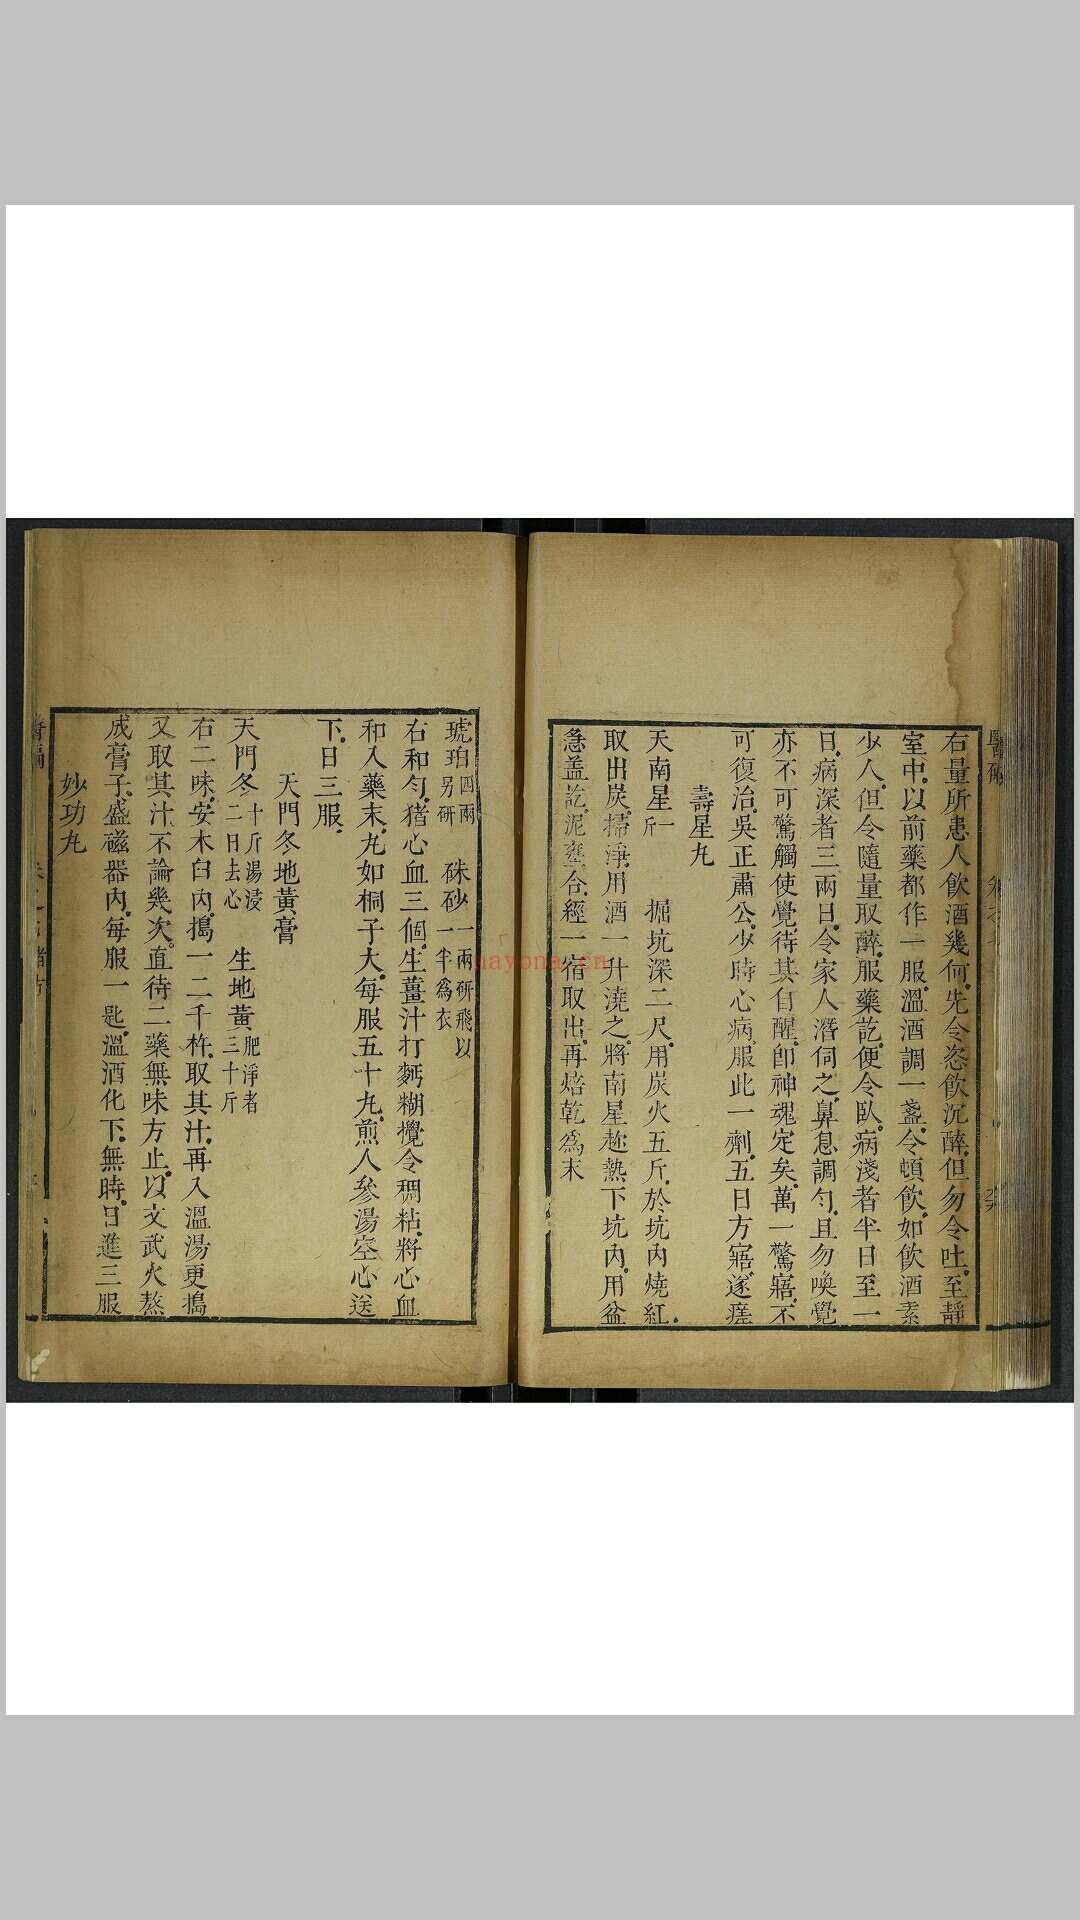 右量所患人飲酒幾何。先令恣飲沉醉。但勿令吐。至靜
室中。以前藥都作一服。溫酒調一盞。令頓飲。如飲酒素
少人。但令隨量取醉。服藥訖。便令臥。病淺者半日至一
日。病深者三兩日。令家人潛伺之。鼻息調勻。且勿喚覺
亦不可驚觸使覺。待其自醒。卽神魂定矣。萬一驚寤。不
可復治。吳正肅公。少時心病。服此一劑。五日方寤。遂瘥
壽星丸
天南星一斤 掘坑深二尺。用炭火五斤。於坑內燒紅。
取出炭。掃淨。用酒一升澆之。將南星趂熱下坑內。用盆
急葢訖。泥壅合。經一宿取出。再焙乾爲末
琥珀四兩另研 硃砂一兩研飛以一半爲衣
右和勻。猪心血三個。生薑汁打麫糊攪令稠粘。將心血
和入藥末。丸如桐子大。每服五十丸。煎人參湯空心送
下。日三服。
天門冬地黃膏
天門冬十斤湯浸二日去心 生地黃肥淨者三十斤
右二味。安木臼內。搗一二千杵。取其汁。再入溫湯更搗
又取其汁。不論幾次。直待二藥無味方止。以文武火熬
成膏子。盛磁器內。每服一匙。溫酒化下。無時。日進三服
妙功丸
nayona.cn